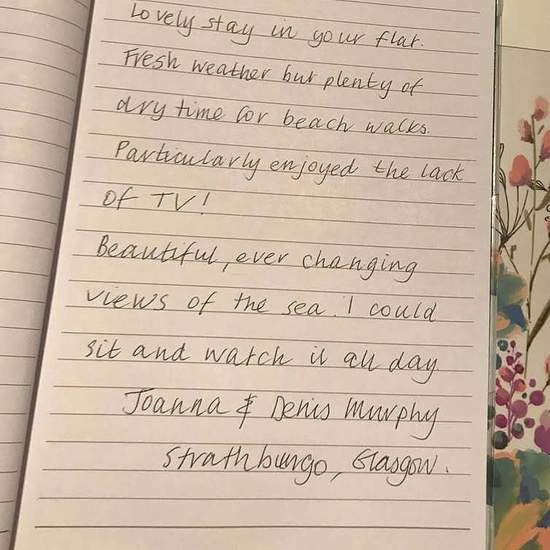 Lovely stay in your flat.
Fresh weather but plenty of
dry time for beach walks.
Particularly enjoyed the lack
of TV!
Beautiful, ever changing
views of the sea. I could
sit and watch it all day
Joanna & Denis Murphy
Strathbungo, Glasgow.